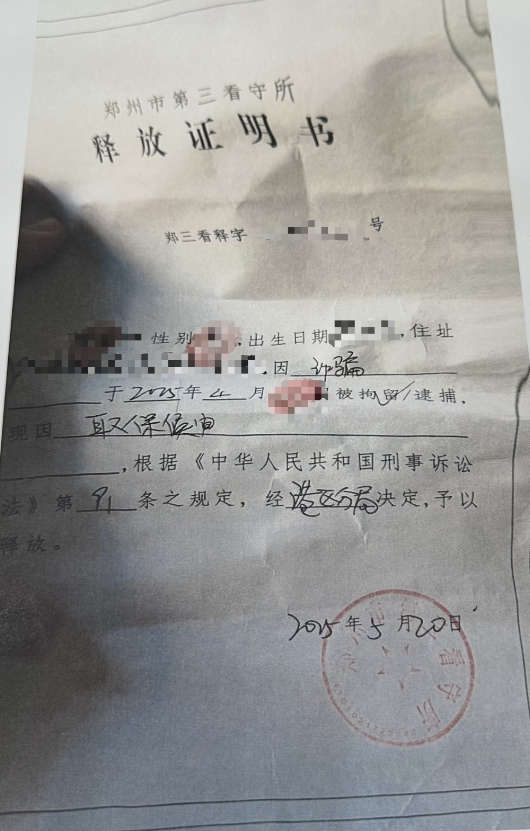 郑州市第三看守所
释放证明书
郑三看释字 号
性别 ,出生日期 ,住址
,因 诈骗
于 2025 年 4 月 被拘留/逮捕,
现因 取保候审
,根据《中华人民共和国刑事诉讼
法》第 91 条之规定,经 港区分局 决定,予以
释放。
2025 年 5 月 20 日